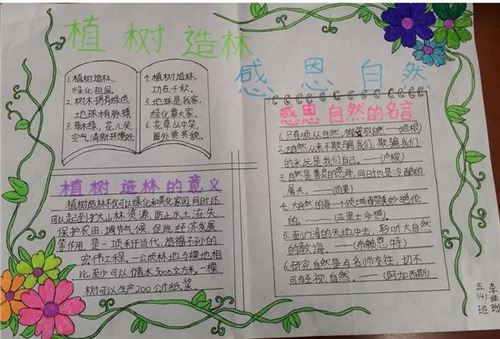 植树造林
感恩自然
1.植树造林,
绿化祖国。
2.树木拥有绿色,
地球有脉搏
3.草木绿,花儿笑
空气清新环境好
4.植树造林,
功在千秋。
5.地球是我家,
绿化靠大家
6.花草丛中笑,
园外赏木貌。
植树造林的意义
植树造林不仅可以绿化和美化家园,同时还
可以起到扩大山林资源、防止水土流失、
保护农田、调节气候、促进经济发展
等作用,是一项利于当代、造福子孙的
宏伟工程,一公顷林地与裸地相
比至少可以储水3000立方米,一棵
树可以生产200公斤纸浆
感恩自然的名言
1.只有顺从自然,
——培根
2.大自然从来不欺骗我们,欺骗我们
的永远是我们自己。——卢梭
3.自然是善良的慈母,同时也是冷酷的
屠夫。——雨果
4.大自然的每一个领域都是美妙绝伦
的。——(亚里士多德)
5.到
的教诲。——(布赖恩特)
6.研究自然是与名师为往,切不
可轻视自然。——(阿加西斯)
五(4)班
李